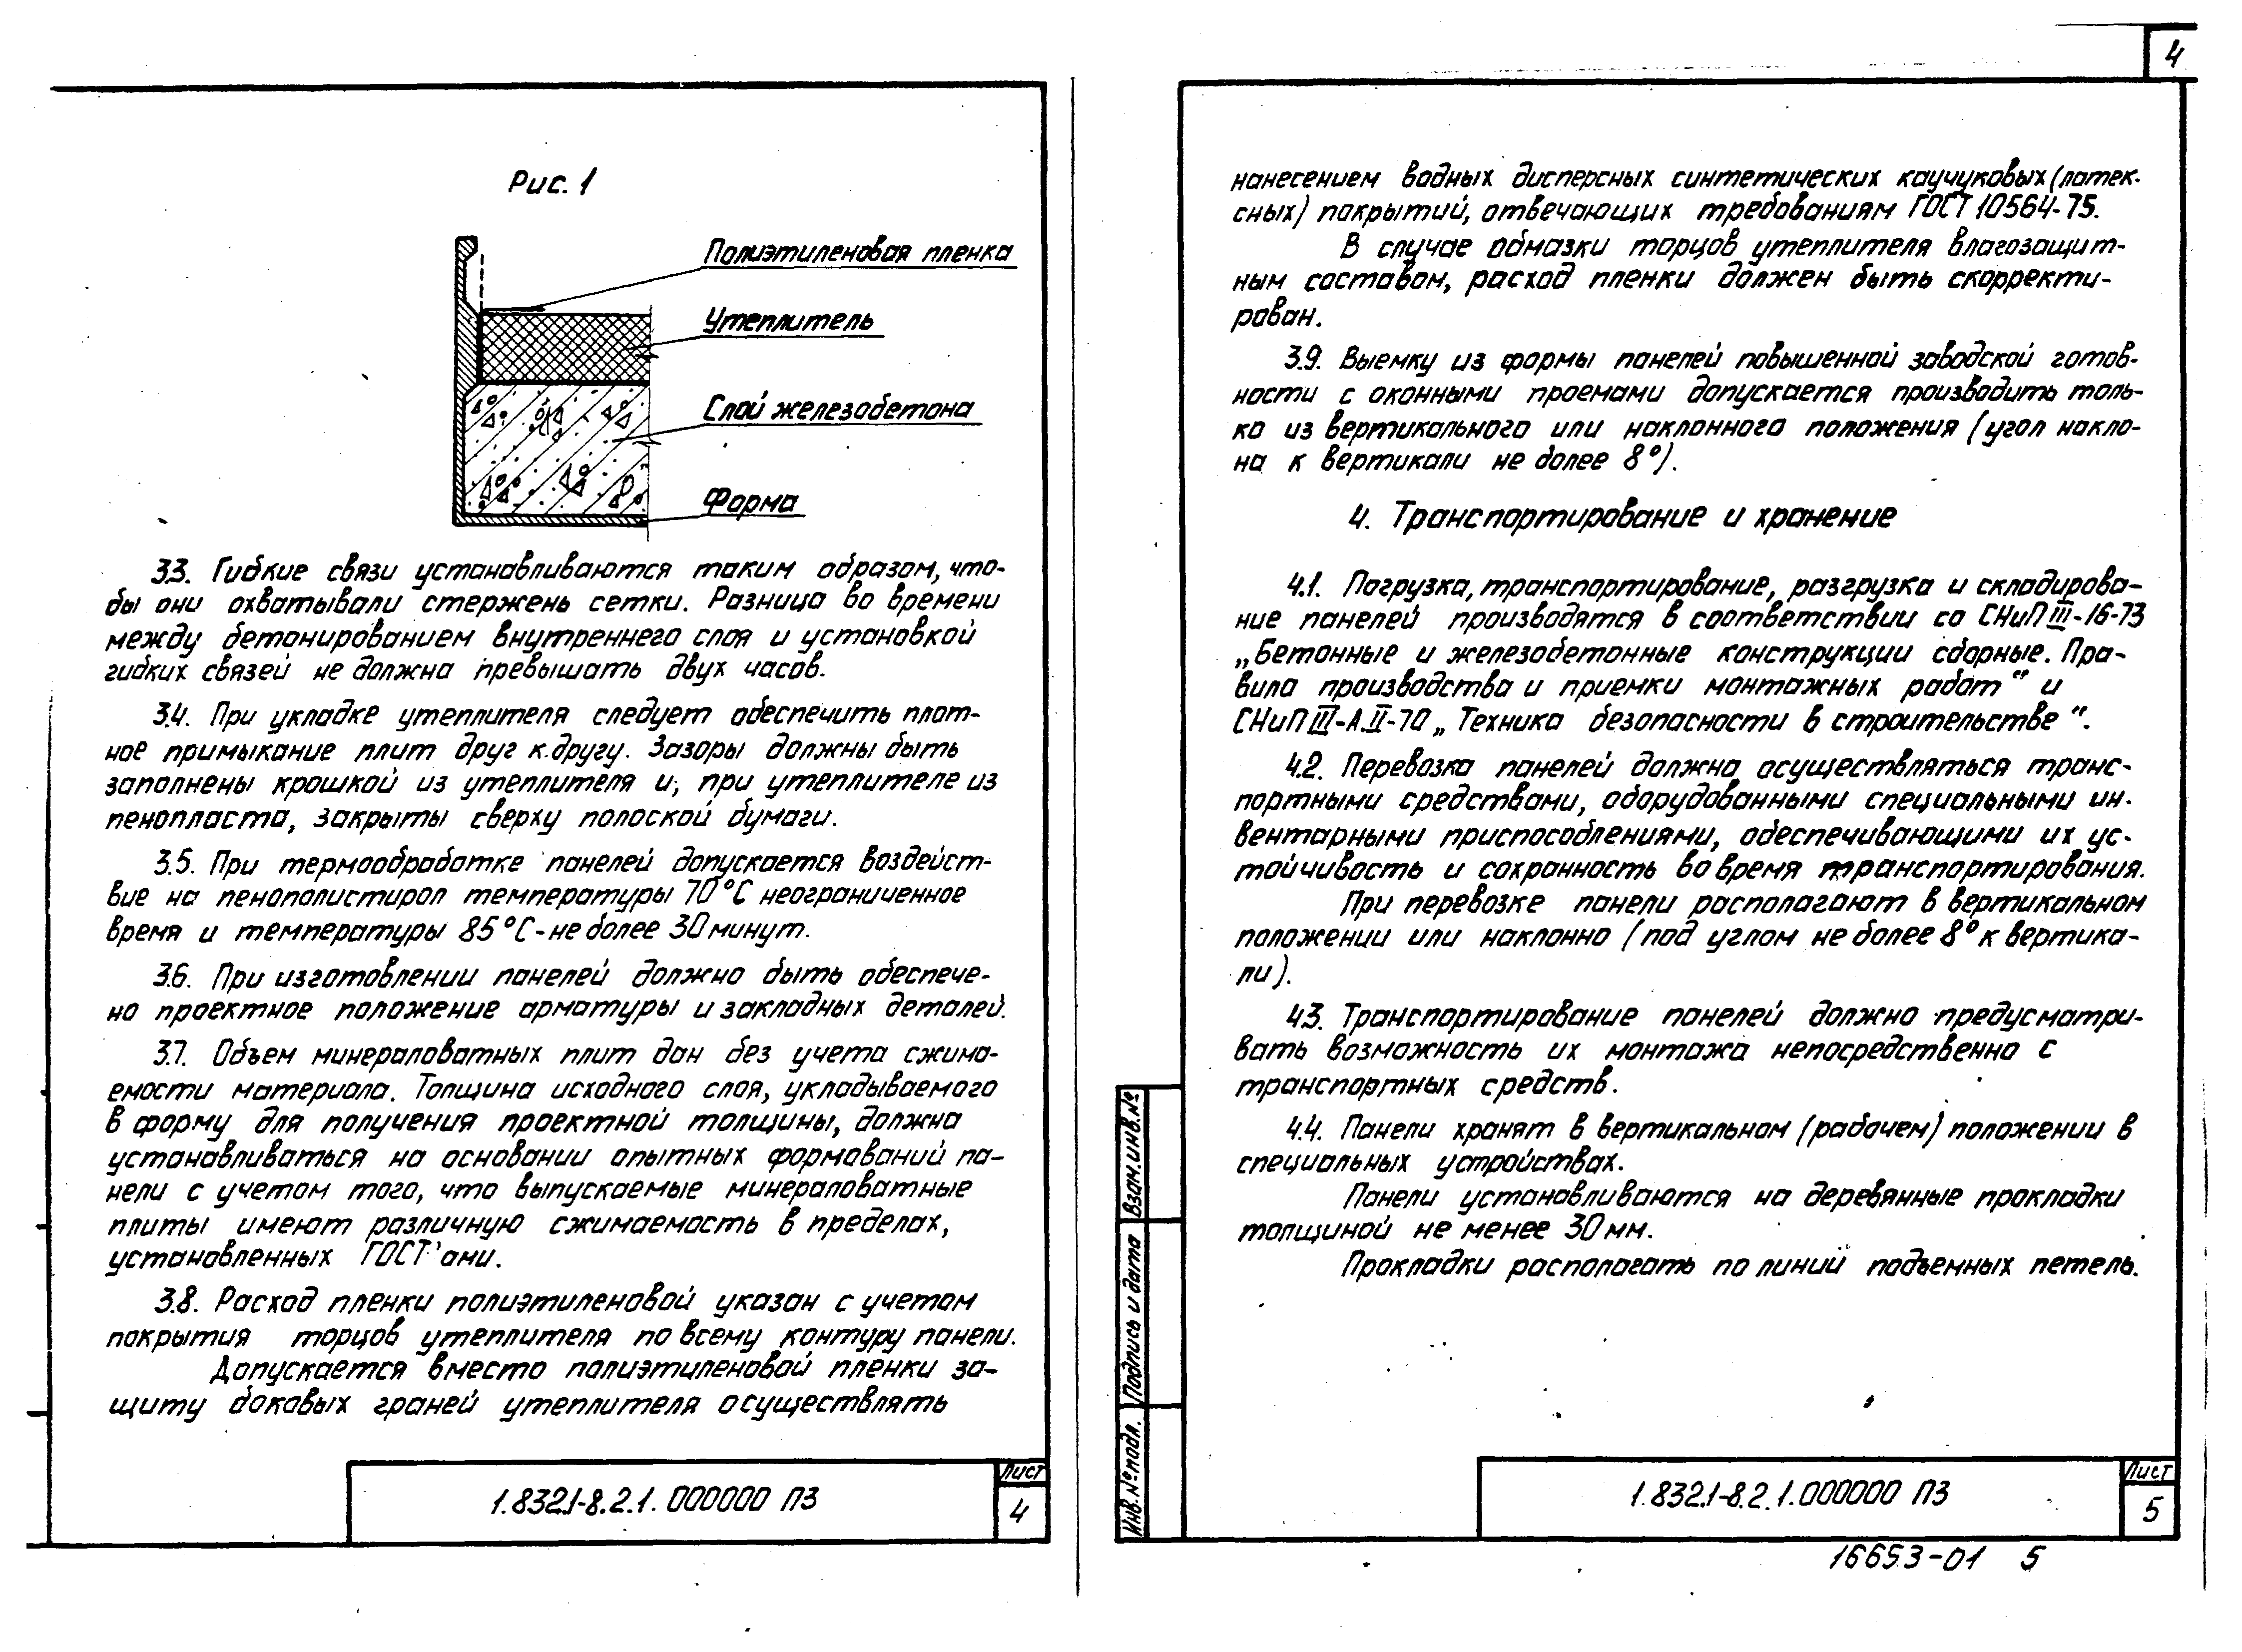 Рис. 1
Полиэтиленовая пленка
Утеплитель
Слой железобетона
Форма
3.3. Гибкие связи устанавливаются таким образом, что-
бы они охватывали стержень сетки. Разница во времени
между бетонированием внутреннего слоя и установкой
гибких связей не должна превышать двух часов.
3.4. При укладке утеплителя следует обеспечить плот-
ное примыкание плит друг к другу. Зазоры должны быть
заполнены крошкой из утеплителя и, при утеплителе из
пенопласта, закрыты сверху полоской бумаги.
3.5. При термообработке панелей допускается воздейст-
вие на пенополистирол температуры 70°С неограниченное
время и температуры 85°С - не более 30 минут.
3.6. При изготовлении панелей должно быть обеспече-
но проектное положение арматуры и закладных деталей.
3.7. Объем минераловатных плит дан без учета сжима-
емости материала. Толщина исходного слоя, укладываемого
в форму для получения проектной толщины, должна
устанавливаться на основании опытных формований па-
нели с учетом того, что выпускаемые минераловатные
плиты имеют различную сжимаемость в пределах,
установленных ГОСТ'ами.
3.8. Расход пленки полиэтиленовой указан с учетом
покрытия торцов утеплителя по всему контуру панели.
Допускается вместо полиэтиленовой пленки за-
щиту боковых граней утеплителя осуществлять
1.832.1-8.2.1.000000 ПЗ
Лист
4
4
нанесением водных дисперсных синтетических каучуковых (латек-
сных) покрытий, отвечающих требованиям ГОСТ 10564-75.
В случае обмазки торцов утеплителя влагозащит-
ным составом, расход пленки должен быть скорректи-
рован.
3.9. Выемку из формы панелей повышенной заводской готов-
ности с оконными проемами допускается производить толь-
ко из вертикального или наклонного положения (угол накло-
на к вертикали не более 8°).
4. Транспортирование и хранение
4.1. Погрузка, транспортирование, разгрузка и складирова-
ние панелей производятся в соответствии со СНиП III-16-73
„Бетонные и железобетонные конструкции сборные. Пра-
вила производства и приемки монтажных работ“ и
СНиП III-А.II-70 „Техника безопасности в строительстве“.
4.2. Перевозка панелей должна осуществляться транс-
портными средствами, оборудованными специальными ин-
вентарными приспособлениями, обеспечивающими их ус-
тойчивость и сохранность во время транспортирования.
При перевозке панели располагают в вертикальном
положении или наклонно (под углом не более 8° к вертика-
ли).
4.3. Транспортирование панелей должно предусматри-
вать возможность их монтажа непосредственно с
транспортных средств.
4.4. Панели хранят в вертикальном (рабочем) положении в
специальных устройствах.
Панели устанавливаются на деревянные прокладки
толщиной не менее 30 мм.
Прокладки располагать по линий подъемных петель.
Взам. инв. №
Подпись и дата
Инв. № подл.
1.832.1-8.2.1.000000 ПЗ
Лист
5
16653-01 5